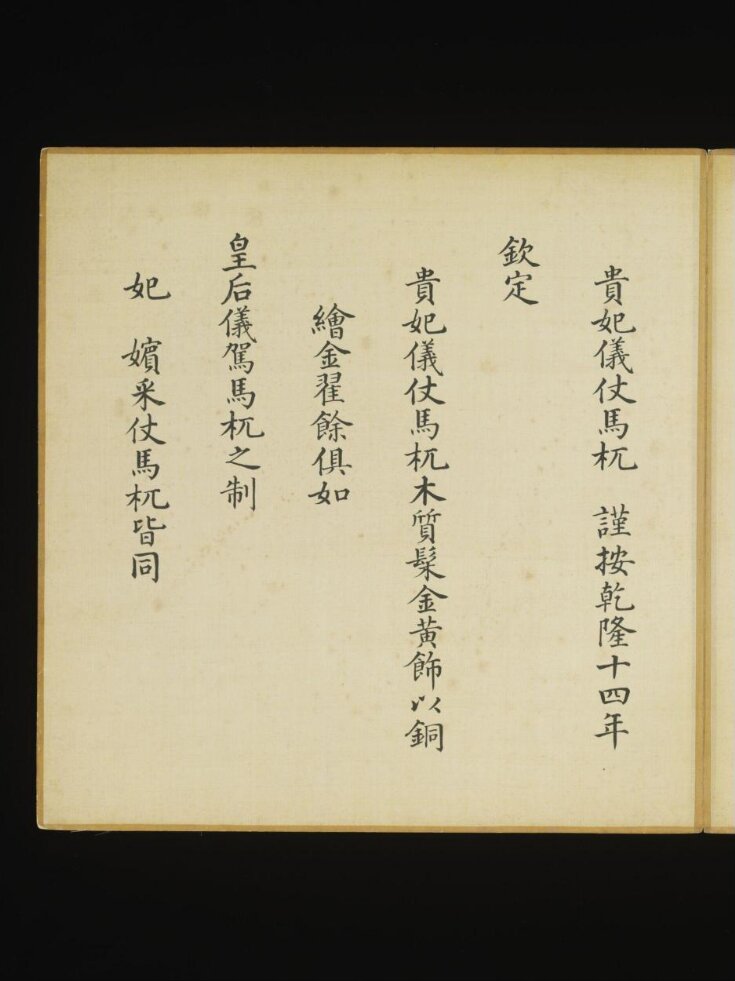 貴妃儀仗馬杌　謹按乾隆十四年
欽定
貴妃儀仗馬杌木質髤金黃飾以銅
繪金翟餘俱如
皇后儀駕馬杌之制
妃　嬪采仗馬杌皆同